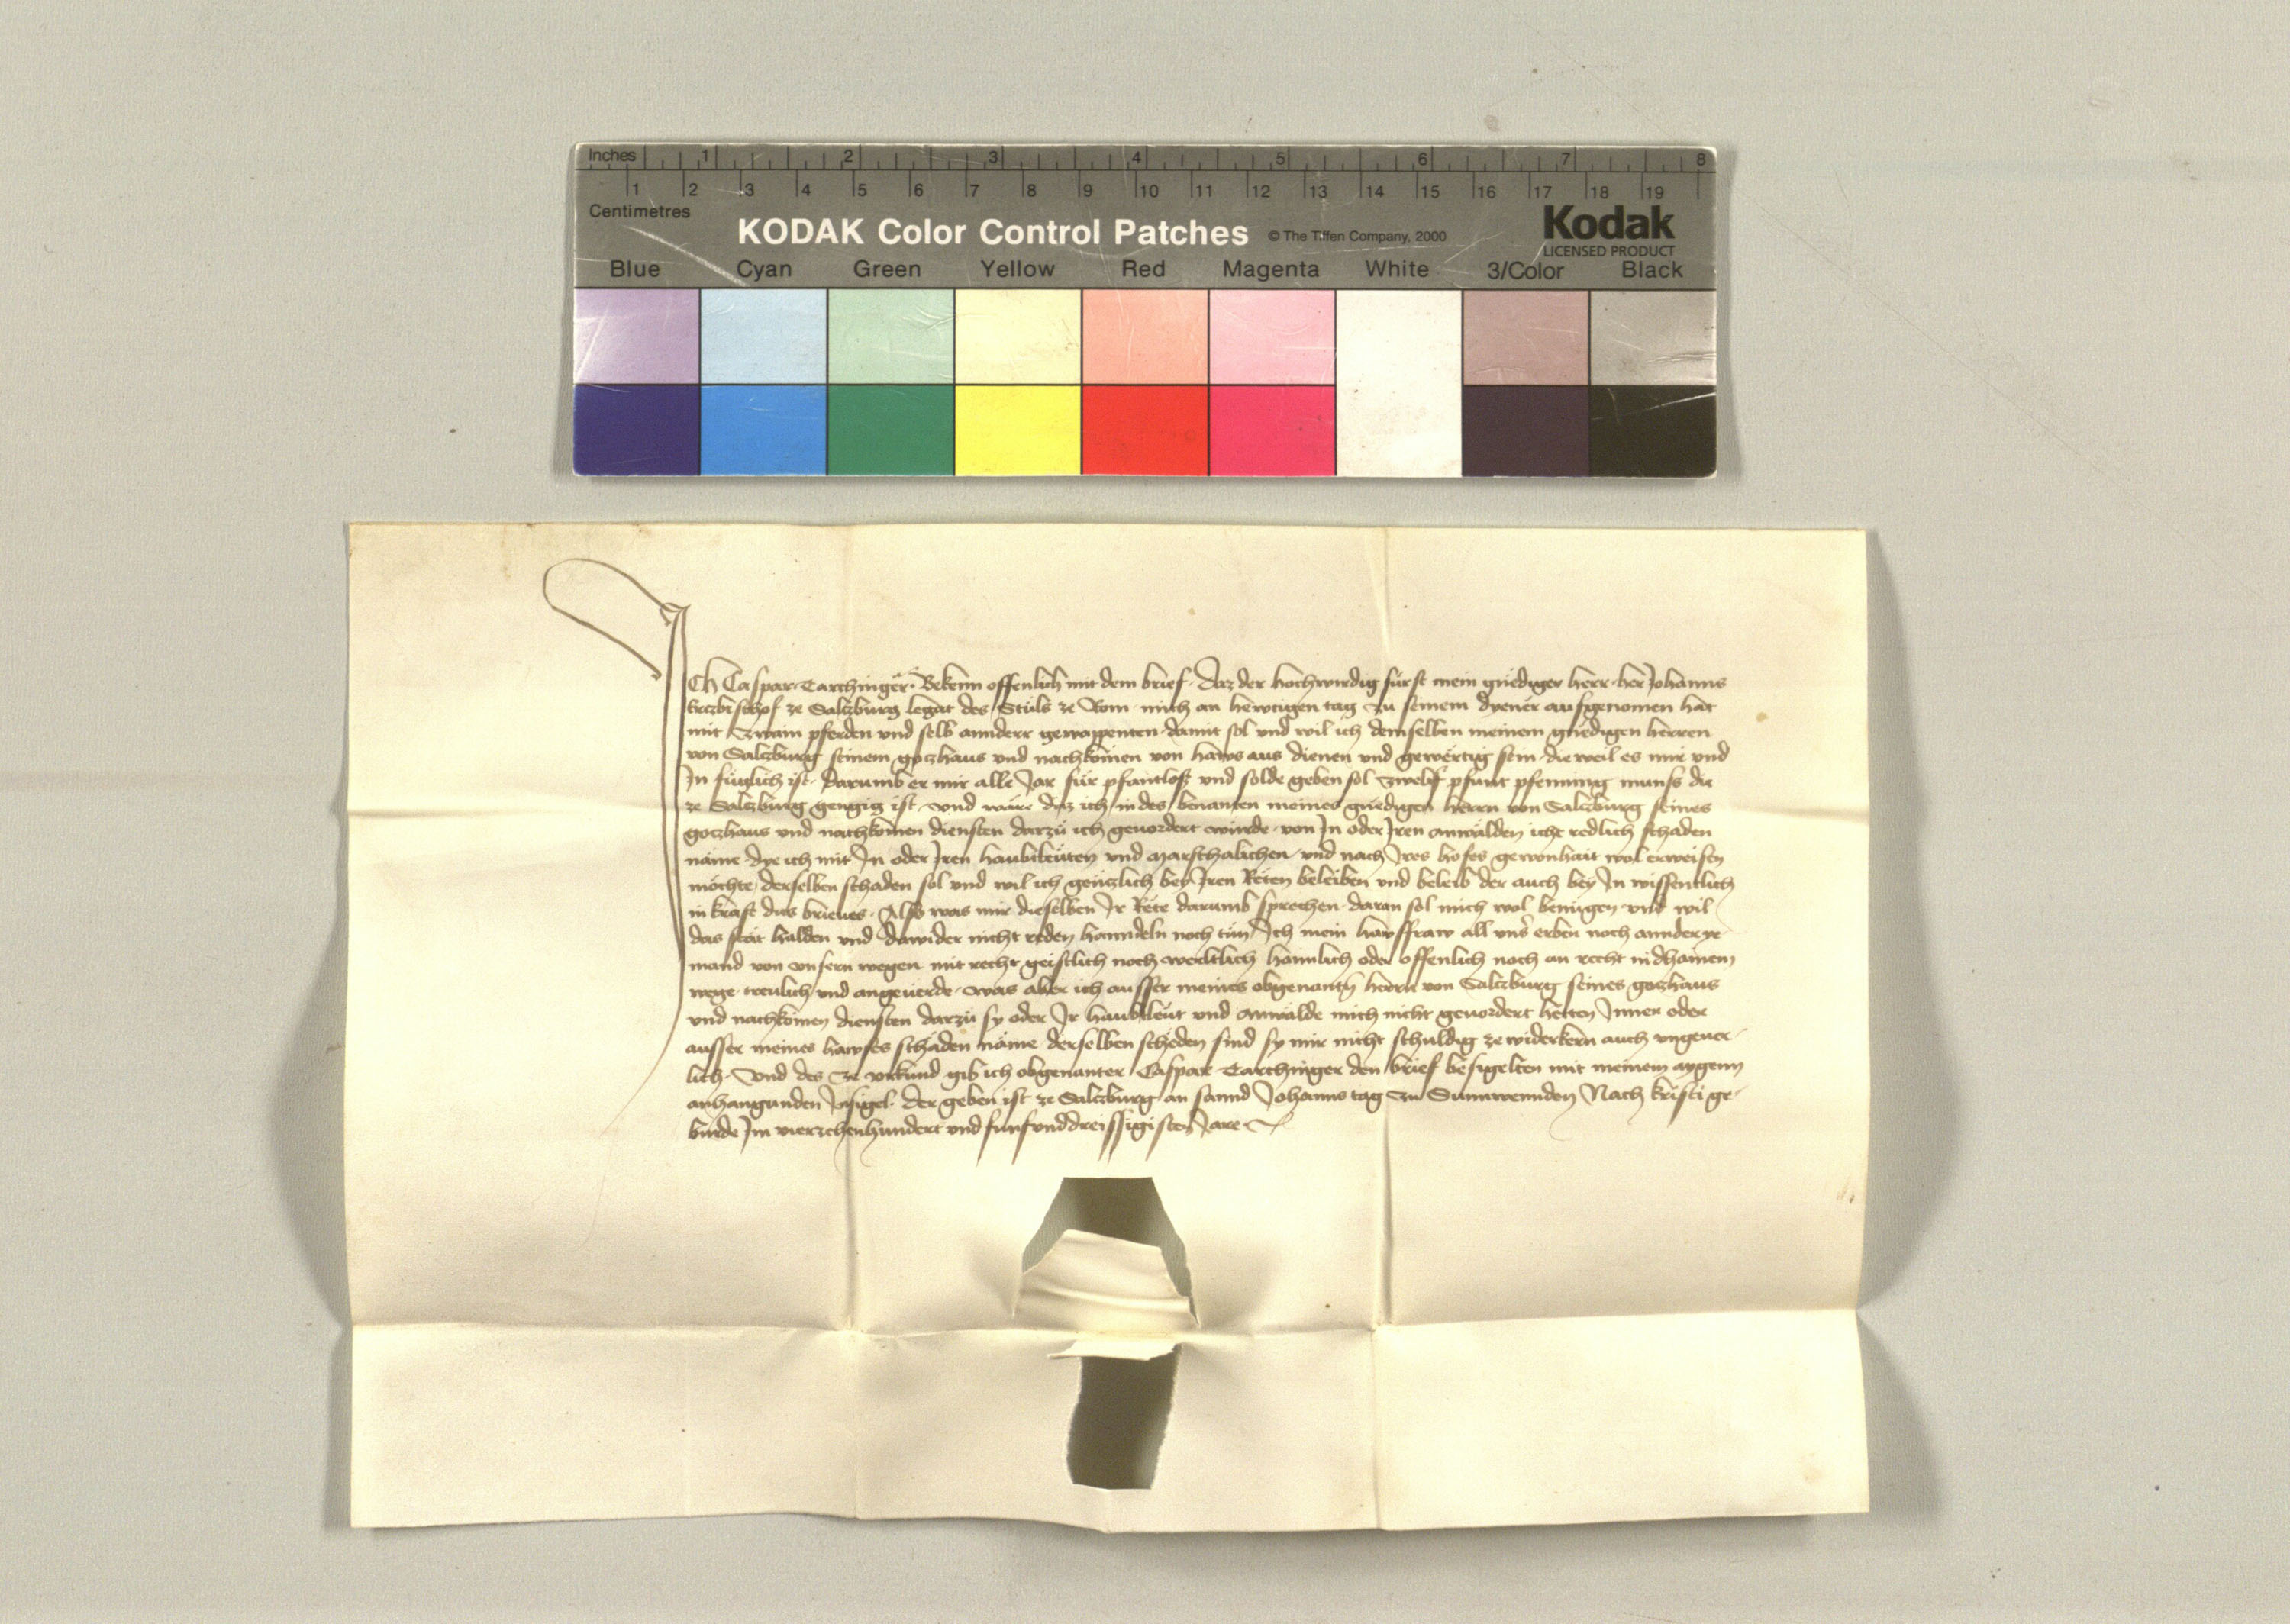 Inches 1 2 3 4 5 6 7 8
1 2 3 4 5 6 7 8 9 10 11 12 13 14 15 16 17 18 19
Centimetres
KODAK Color Control Patches © The Tiffen Company, 2000 Kodak
LICENSED PRODUCT
Blue Cyan Green Yellow Red Magenta White 3/Color Black
ICh Caspar Tarchinger. Bekenn offenlich mit dem brief. Daz der hochwirdig fürst mein gnediger herr her Johanns
Erczbischof ze Salczburg legat des Stuls ze Rom mich an hewtigen tag zu seinem dyener aufgenomen hat
mit zwain pferden und selb annderr gewappenten damit sol und wil ich demselben meinem gnedigen herren
von Salczburg seinem goczhaus und nachkomen von haws aus dienen und gewertig sein die weil es mir und
In füglich ist. Darumb er mir alle Jar für pfantlosz und solde geben sol zwelif pfunt pfenning munss die
ze Salczburg gengig ist. und wäre daz ich in des benanten meines gnedigen herrn von Salczburg seines
goczhaus und nachkomen diensten darzu ich geuordert würde von In oder Iren anwälden icht redlich schaden
näme dye ich mit In oder Iren haubtleuten und Marschalichen und nach Ires hofes gewonhait wol erweisen
möchte derselben schaden sol und wil ich genczlich bey Iren Reten beleiben und beleib der auch bey In wissentlich
in kraft dits brieues. Also was mir dieselben Ir Rete darumb sprechen daran sol mich wol benügen und wil
das stät halden und dawider nicht reden hanndeln noch tun Ich mein hawsfraw all unser erben noch annder ye
mand von unsern wegen mit recht geistlich noch werltlich haimlich oder offenlich noch an recht in dhainem
wege treulich und angeuerde. was aber ich ausser meines obgenanten herrn von Salczburg seines goczhaus
und nachkomen diensten darzu sy oder Ir haubtleut und anwälde mich nicht geuordert hetten Inner oder
ausser meines hawses schaden näme derselben scheden sind sy mir nicht schuldig ze widerkern auch ungeuer
lich. Und des ze urkund gib ich obgenanter Caspar Tarchinger den brief besigelten mit meinem aygenn
anhangunden Insigel. Der geben ist ze Salczburg an sannd Johanns tag zu Sunnwennden Nach Kristi ge
burde Im vierzehenhundert und funfunddreissigisten Jare